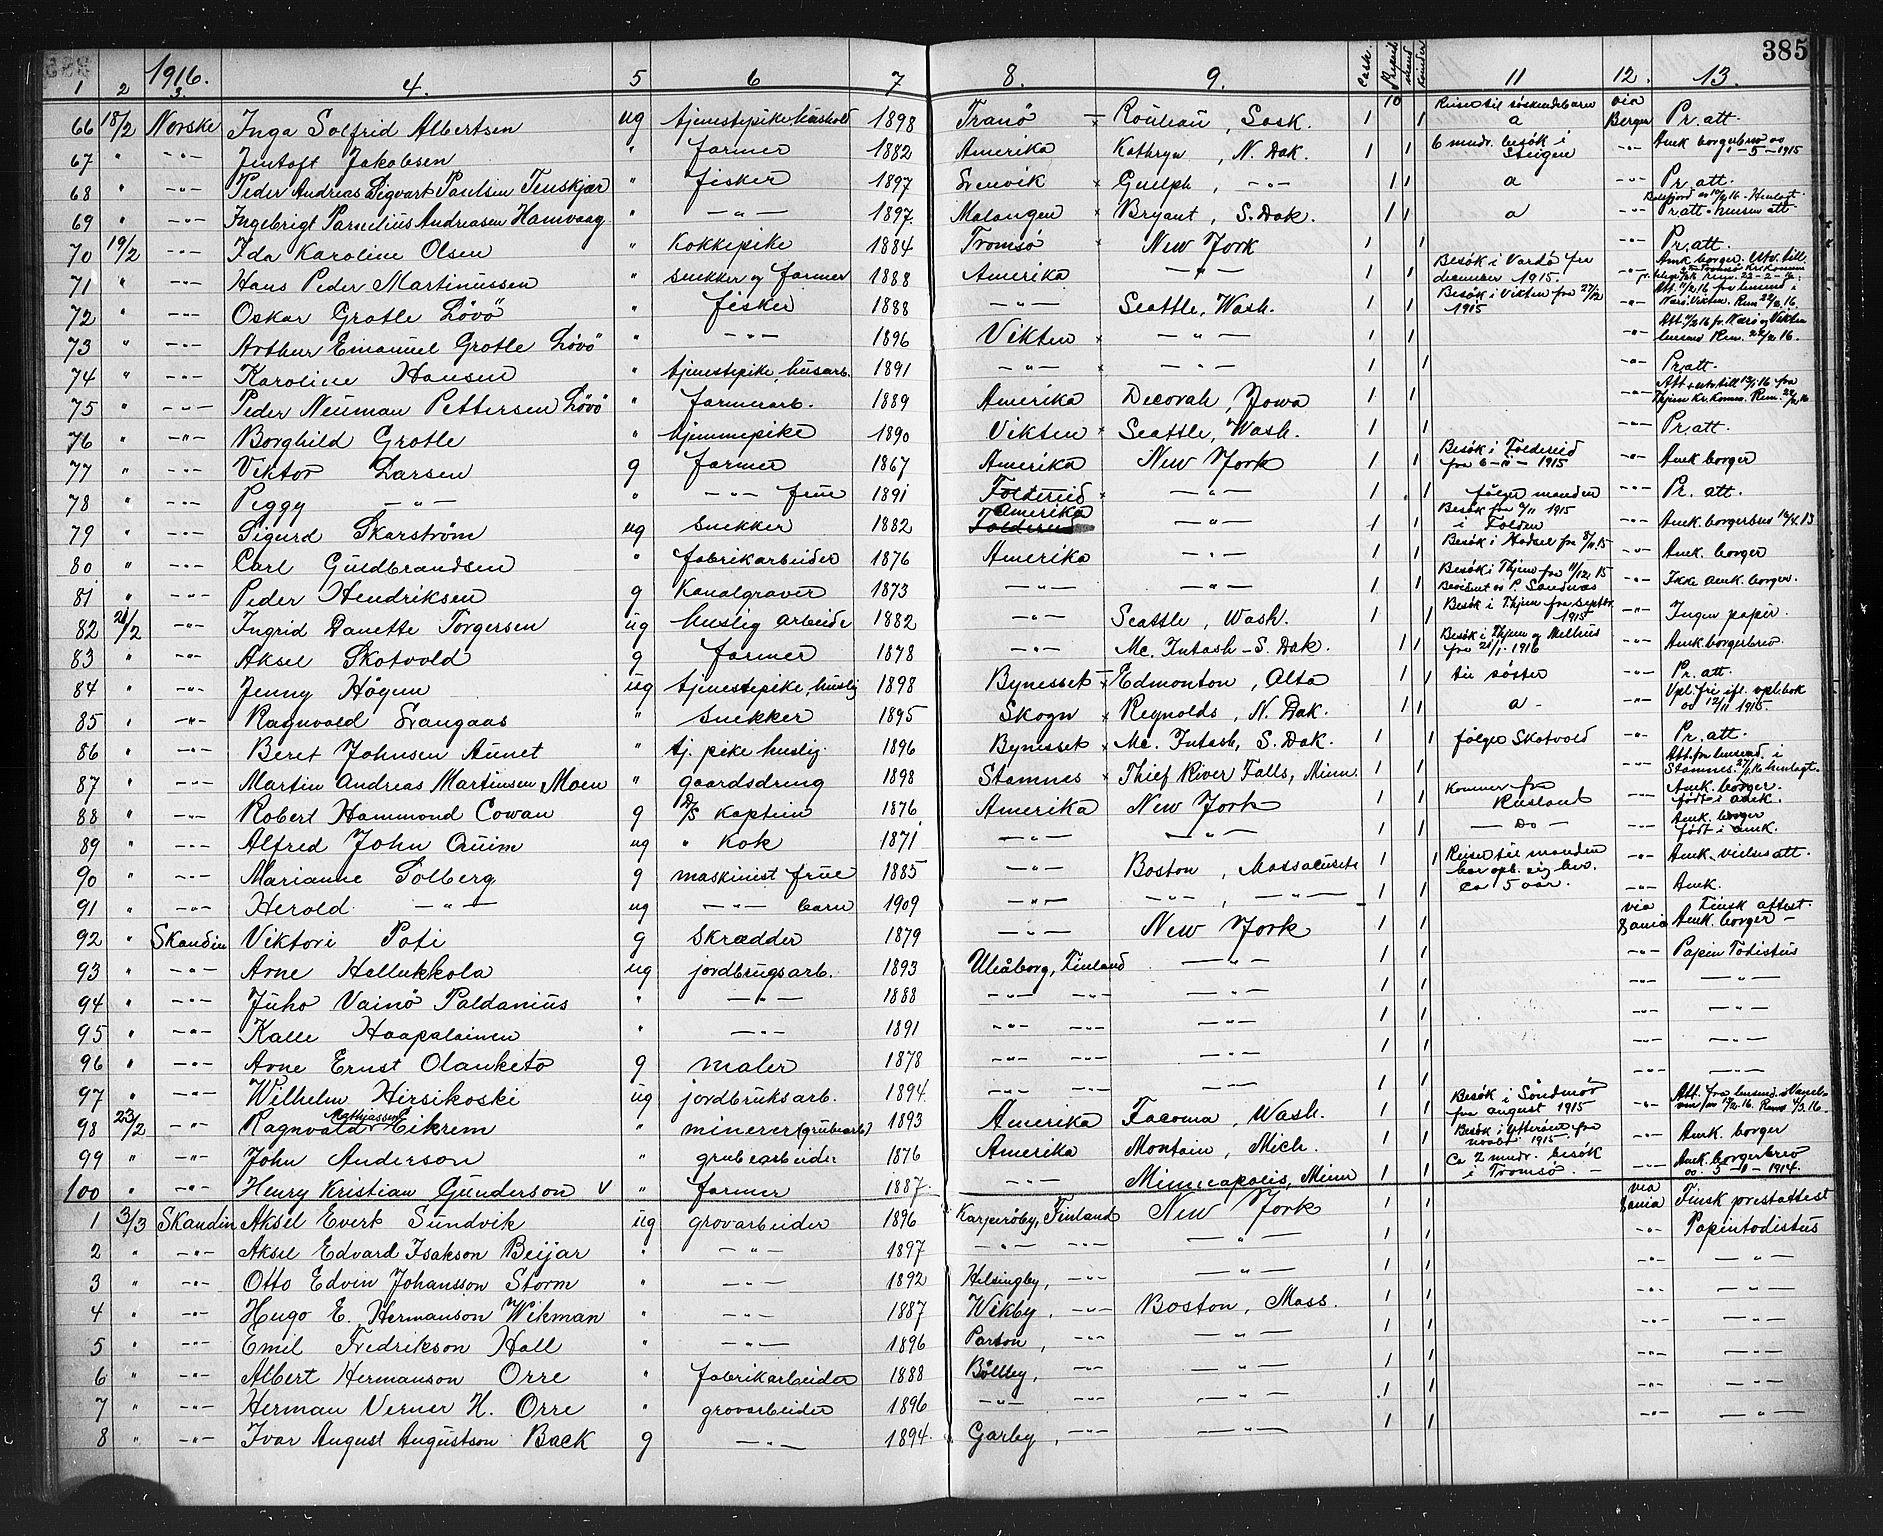 385
1916. Cash. Kvinder
1 2 3. 4. 5 6 7 8. 9. 10 11 12. 13.
66 18/2 Norske Inga Solfrid Albertsen ug tjenestepike, 1898 Tranö Rouleau, Sask. 1 1 Reiser til söskendebarn a via Bergen Pr. att.
67 " -"- Jentoft Jakobsen " farmer 1882 Amerika Kathryn, N. Dak. 1 1 6 mndr. besök i Steigen -"- Amk borgerbrev av 1-5-1915
68 " -"- Peder Andreas Sigvart Paulsen Tenskjær " fisker 1897 Svenvik × Guelph, -"- 1 1 a -"- Pr. att.
69 " -"- Ingebrigt Parnelius Andreasen Hamvaag " -"- 1897 Malangen × Bryant, S. Dak. 1 1 a -"- Pr. att.
70 19/2 -"- Ida Karoline Olsen " Kokkepike 1884 Tromsö × New York 1 1 -"- Pr. att.
71 " -"- Hans Peder Martinussen " snekker og farmer 1888 Amerika -"- 1 1 Besök i Vardö fra december 1915. -"- Amk borger.
72 " -"- Oskar Grotle Lövö " fisker 1888 -"- Seattle, Wash. 1 1 Besök i Vikten fra 27/12 1915 -"-
73 " -"- Arthur Emanuel Grotle Lövö " -"- 1896 Vikten × -"- 1 1 -"-
74 " -"- Karoline Hansen " tjenestepike, husarb. 1891 -"- × -"- 1 1 -"- Pr. att.
75 " -"- Peder Neuman Pettersen Lövö " farmerarb. 1889 Amerika Decorah, Jowa 1 1 -"-
76 " -"- Borghild Grotle " hjemmepike 1890 Vikten × Seattle, Wash. 1 1 -"- Pr. att.
77 " -"- Viktor Larsen g farmer 1867 Amerika New York 1 1 Besök i Foldereid fra 6-11-1915 -"- Amk borger
78 " -"- Peggy -"- " -"- frue 1891 Foldereid × -"- 1 1 fölger manden -"- Pr. att.
79 " -"- Sigurd Skarström ug snekker 1882 Amerika -"- 1 1 Besök fra 9/11 1915 i Folden -"- Amk. borgerbrev
80 " -"- Carl Guldbrandsen " fabrikarbeider 1876 Amerika -"- 1 1 Besök i Hadsel fra 8/11.15 -"- Amk. borger
81 " -"- Peder Hendriksen g Kanalgraver 1873 -"- -"- 1 1 Besök i Thjem fra 11/12.15 -"- Ikke amk. borger.
82 21/2 -"- Ingrid Danette Torgersen ug huslig arbeide 1882 -"- Seattle, Wash. 1 1 Besök i Thjem fra septbr. 1915 -"- Ingen papir.
83 " -"- Aksel Skotvold g farmer 1878 -"- Mc. Intash - S. Dak. 1 1 Besök i Thjem og Melhus fra 21/1. 1916 -"- Amk. borgerbrev
84 " -"- Jenny Högen ug tjenestepike, huslig 1898 Bynesset × Edmonton, Alta 1 1 til söster -"- Pr. att.
85 " -"- Ragnvald Svangaas " snekker 1895 Skogn × Reynolds, N. Dak. 1 1 a - -"- Vpl. fri ifl. vpl. bok av 12/11 1915.
86 " -"- Beret Johnsen Aunet " tj. pike huslig. 1896 Bynesset × Mc. Intash, S. Dak. 1 1 fölger Skotvold -"- Pr. att.
87 " -"- Martin Andreas Martinsen Moen " gaardsdreng 1898 Stamnes × Thief River Falls, Minn. 1 1 -"- Att. fra lensmd. i Stamnes 27/1.16 henlagt.
88 " -"- Robert Hammond Cowan g D/S kaptein 1876 Amerika New York 1 1 Kommer fra Rusland -"- Amk. borger. födt i amk.
89 " -"- Alfred John Cruim ug " kok 1871 -"- -"- 1 1 - Do - -"- Amk. borger födt i amk.
90 " -"- Marianne Solberg g maskinist frue 1885 -"- Boston, Massacusets 1 1 Reiser til manden har opt. sig her. ca 5 aar. -"- Amk. vielsesatt.
91 " -"- Herold -"- ug -"- barn 1909 -"- -"-, -"- 1 1 -"- Amk.
92 " Skandin Viktori Pati g skrædder 1879 -"- New York 1 1 via Dania Finsk attest. Amk. borger -
93 " -"- Arne Hallukkola ug jordbrugsarb. 1893 Uleåborg, Finland -"- 1 1 -"- Papin Todistus
94 " -"- Juho Vainö Paldanius " -"- 1888 -"- -"- -"- 1 1 -"- -"-
95 " -"- Kalle Haapalainen " -"- 1891 -"- -"- -"- 1 1 -"- -"-
96 " -"- Arne Ernst Olanketo g maler 1878 -"- -"- -"- 1 1 -"- -"-
97 " -"- Wilhelm Hirsikoski ug jordbruksarb. 1894. -"- -"- 1 1 -"- -"-
98 23/2 -"- Ragnvald Mathiassen Eikrem " minerer (grubearb) 1893 Amerika Tacoma, Wash. 1 1 Besök i Söndmör fra august 1915 -"-
99 " -"- John Anderson " grubearbeider 1876 Amerika Montain, Mich. 1 1 Besök i Ytterøen fra novbr 1915 -"- Amk. borger
100 " -"- Henry Kristian Gunderson v " farmer 1887. -"- Minneapolis, Minn 1 1 Ca 2 mndr. besök i Tromsö. - -"- Amk. borgerbrev av 5-1-1914.
1 3/3 Skandin Aksel Evert Sundvik ug grovarbeider 1896 Karperöby, Finland New York 1 1 via Dania Finsk prestattest
2 " -"- Aksel Edvard Isakson Beijar " -"- 1897 -"- -"- -"- 1 1 -"- Papintodistus
3 " -"- Otto Edvin Johansson Storm " -"- 1892 Helsingby, -"- -"- 1 1 -"- -"-
4 " -"- Hugo E. Hermanson Wikman " -"- 1887 Wikby, -"- Boston, Mass. 1 1 -"- -"-
5 " -"- Emil Fredrikson Hall " -"- 1896 Parton, -"- -"- 1 1 -"- -"-
6 " -"- Albert Hermanson Orre " fabrikarbeider 1888 Bölleby, -"- -"- 1 1 -"- -"-
7 " -"- Herman Verner H. Orre " grovarbeider 1896 -"- -"- -"- 1 1 -"- -"-
8 " -"- Ivar August Augustson Back g -"- 1894. Garby, -"- -"- 1 1 -"- -"-